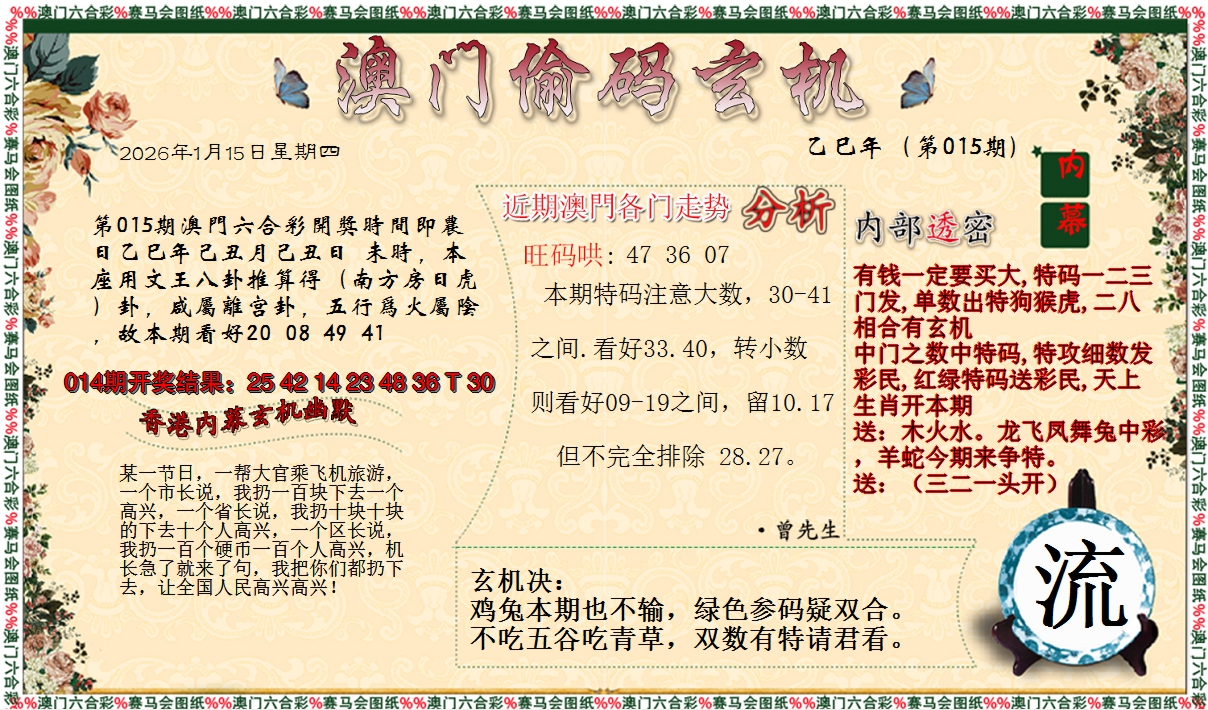 %%澳门六合彩%赛马会图纸%%澳门六合彩%赛马会图纸%%澳门六合彩%赛马会图纸%%澳门六合彩%赛马会图纸%%澳门六合彩%赛马会图纸%%澳门六合彩%赛马会图纸%%
澳门偷码玄机
2026年1月15日星期四
乙巳年（第015期）
第015期澳門六合彩開獎時間即農
日乙巳年己丑月己丑日 未時，本
座用文王八卦推算得（南方房日虎
）卦，咸屬離宮卦，五行爲火屬陰
，故本期看好20 08 49 41
014期开奖结果：25 42 14 23 48 36 T 30
香港内幕玄机幽默
某一节日，一帮大官乘飞机旅游，
一个市长说，我扔一百块下去一个
高兴，一个省长说，我扔十块十块
的下去十个人高兴，一个区长说，
我扔一百个硬币一百个人高兴，机
长急了就来了句，我把你们都扔下
去，让全国人民高兴高兴！
近期澳門各门走势 分析
旺码哄: 47 36 07
本期特码注意大数，30-41
之间.看好33.40，转小数
则看好09-19之间，留10.17
但不完全排除 28.27。
·曾先生
内幕
内部透密
有钱一定要买大,特码一二三
门发,单数出特狗猴虎,二八
相合有玄机
中门之数中特码,特攻细数发
彩民,红绿特码送彩民,天上
生肖开本期
送：木火水。龙飞凤舞兔中彩
，羊蛇今期来争特。
送：（三二一头开）
玄机决：
鸡兔本期也不输，绿色参码疑双合。
不吃五谷吃青草，双数有特请君看。
流
%%澳门六合彩%赛马会图纸%%澳门六合彩%赛马会图纸%%澳门六合彩%赛马会图纸%%澳门六合彩%赛马会图纸%%澳门六合彩%赛马会图纸%%澳门六合彩%赛马会图纸%%